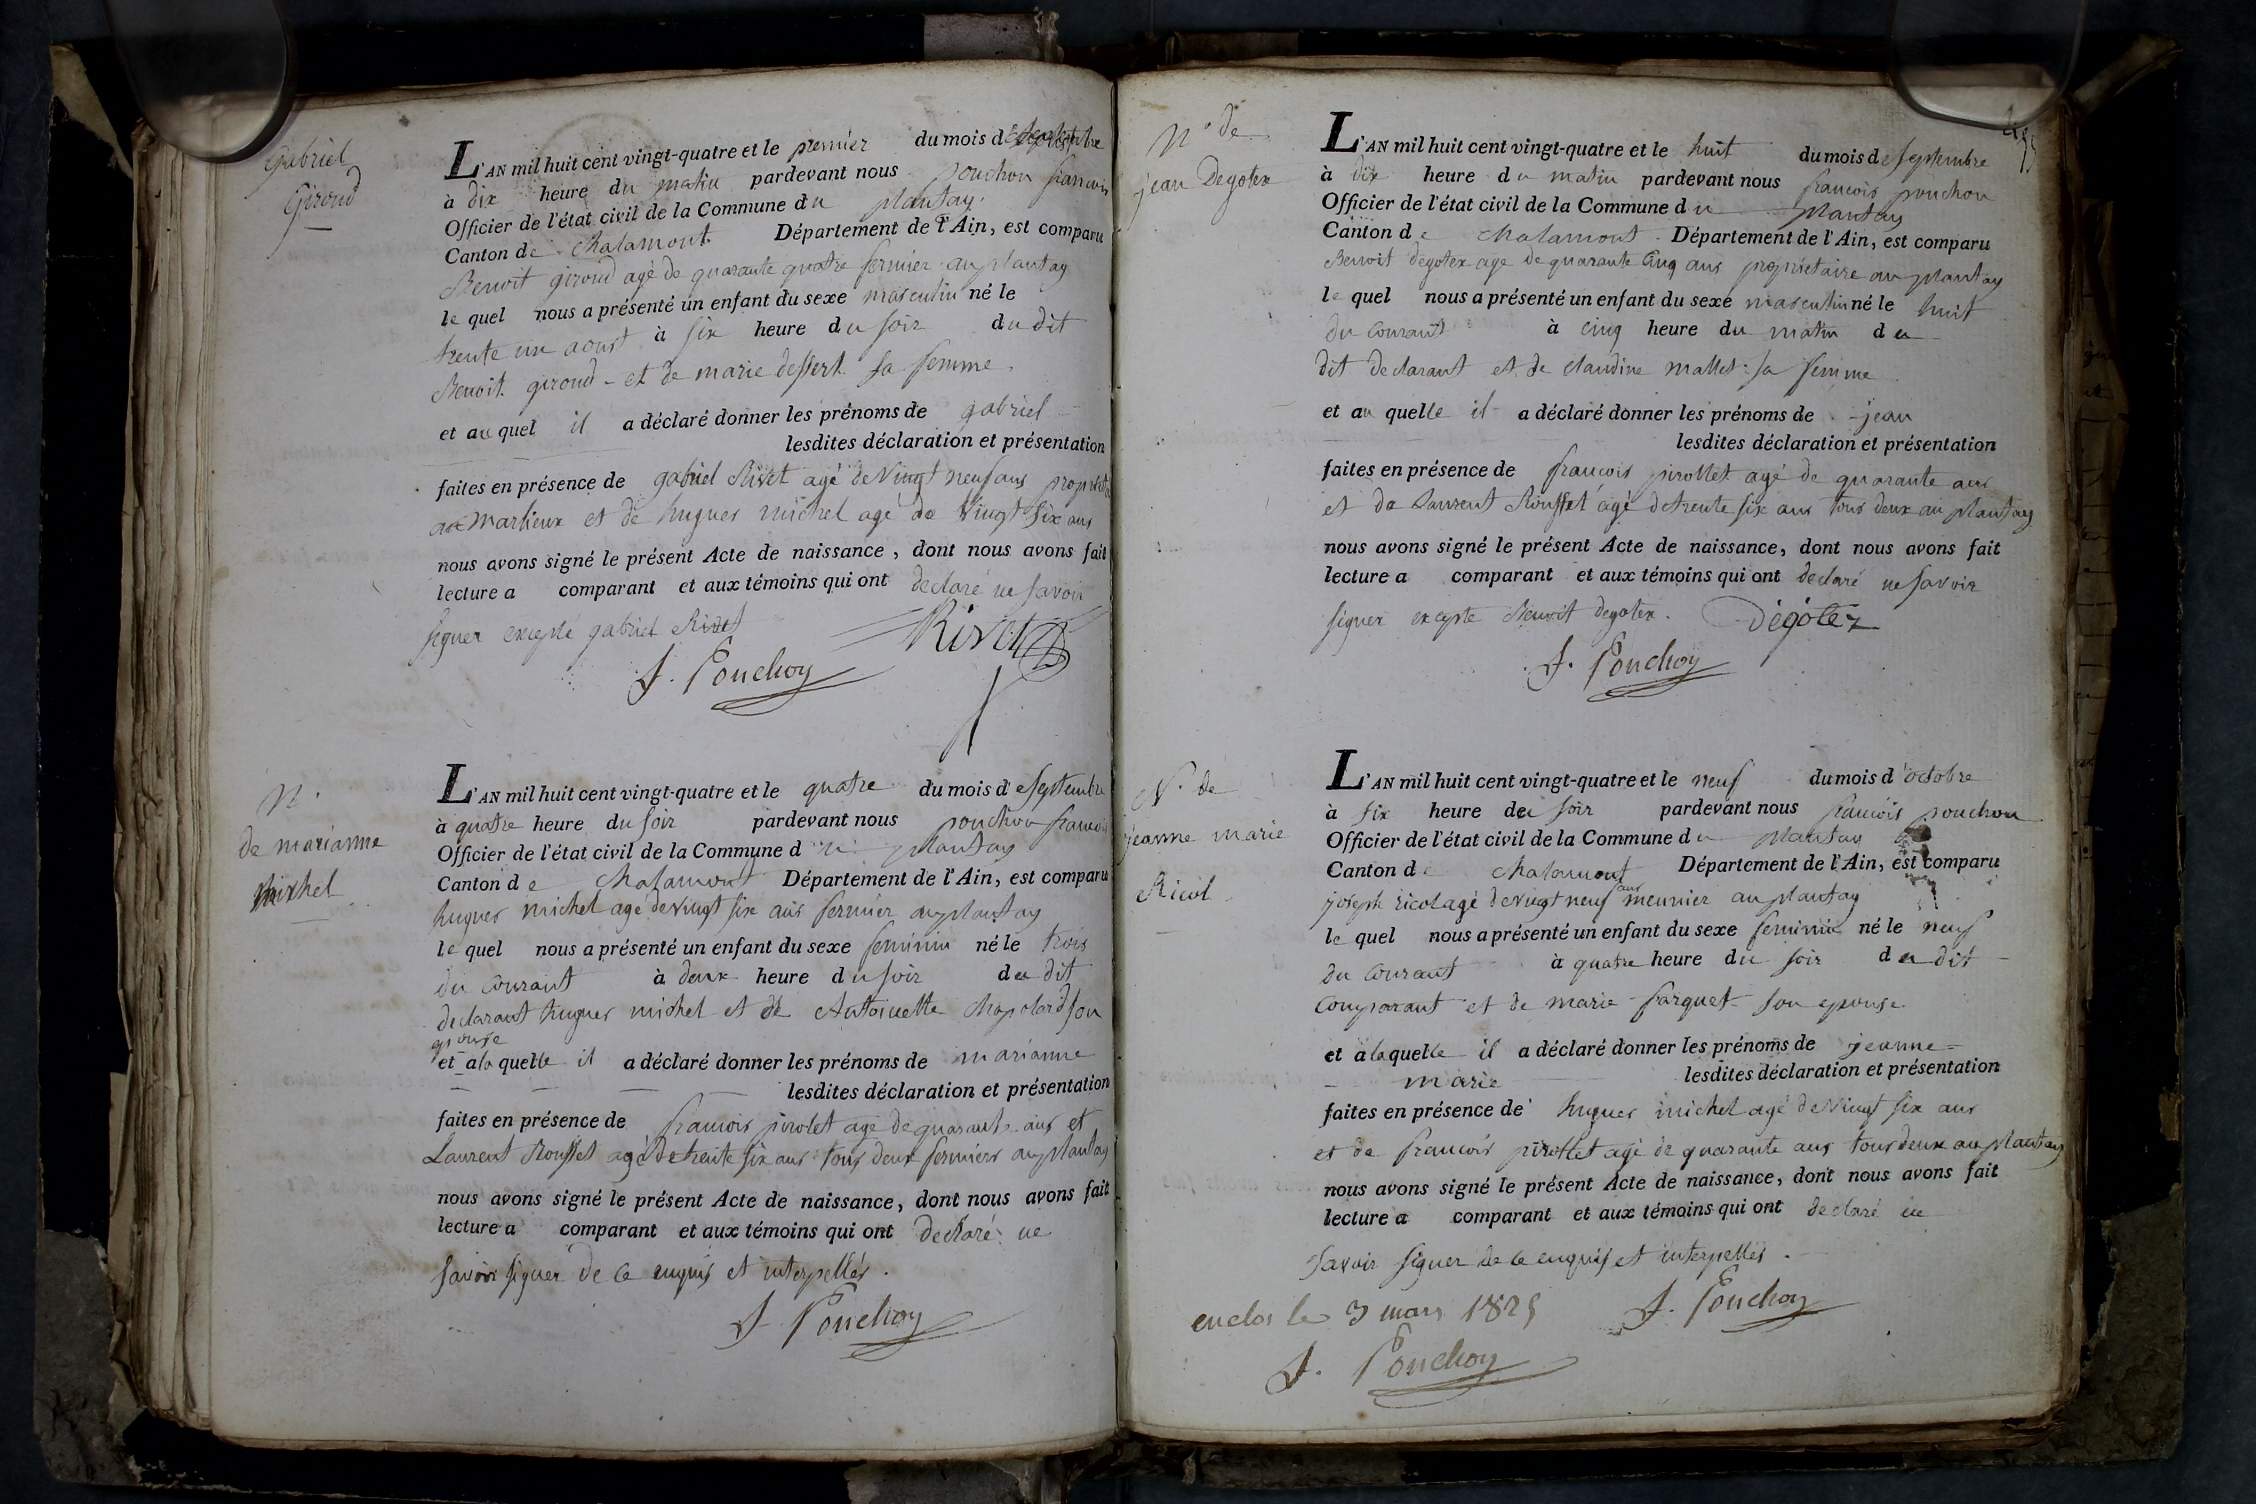 Gabriel
Giroud
L'AN mil huit cent vingt-quatre et le premier du mois de septembre
à dix heure du matin pardevant nous pouchon francois
Officier de l'état civil de la Commune du plantay.
Canton de Chalamont. Département de l'Ain, est comparu
Benoit giroud agé de quarante quatre fermier au plantay
le quel nous a présenté un enfant du sexe masculin né le
trente un aoust à six heure du soir du dit
Benoit giroud - et de marie dessert sa femme.
et au quel il a déclaré donner les prénoms de gabriel
lesdites déclaration et présentation
faites en présence de gabriel Rivet agé de vingt neuf ans
Marlieux et de hugues michel agé de vingt six ans
nous avons signé le présent Acte de naissance, dont nous avons fait
lecture a comparant et aux témoins qui ont declaré ne savoir
signer excepté gabriel Rivet
Rivet
f. Pouchon
N.
de marianne
michel
L'AN mil huit cent vingt-quatre et le quatre du mois de septembre
à quatre heure du soir pardevant nous pouchon francois
Officier de l'état civil de la Commune du plantay
Canton de Chalamont Département de l'Ain, est comparu
hugues michel agé de vingt six ans fermier au plantay
le quel nous a présenté un enfant du sexe feminin né le trois
du courant à deux heure du soir du dit
declarant hugues michel et de Antoinette Chapolard son
epouse
et a la quelle il a déclaré donner les prénoms de marianne
lesdites déclaration et présentation
faites en présence de francois pirolet agé de quarante ans et
Laurent Rousset agé de trente six ans tous deux fermiers au plantay
nous avons signé le présent Acte de naissance, dont nous avons fait
lecture a comparant et aux témoins qui ont declaré ne
savoir signer de ce enquis et interpellés.
f. Pouchon
N.º de
jean Degotex
L'AN mil huit cent vingt-quatre et le huit du mois de septembre
à dix heure du matin pardevant nous francois pouchon
Officier de l'état civil de la Commune du plantay
Canton de Chalamont. Département de l'Ain, est comparu
Benoit degotex age de quarante cinq ans propriétaire au plantay
le quel nous a présenté un enfant du sexe masculin né le huit
du courant à cinq heure du matin du
dit declarant et de claudine mallet sa femme
et au quelle il a déclaré donner les prénoms de jean
lesdites déclaration et présentation
faites en présence de francois pirollet agé de quarante ans
et de Laurent Rousset agé de trente six ans tous deux au plantay
nous avons signé le présent Acte de naissance, dont nous avons fait
lecture a comparant et aux témoins qui ont declaré ne savoir
signer excepte Benoit degotex. Degotex
f. Pouchon
N.º de
jeanne marie
Ricol
L'AN mil huit cent vingt-quatre et le neuf du mois d'octobre
à six heure du soir pardevant nous francois pouchon
Officier de l'état civil de la Commune du plantay
Canton de Chalamont Département de l'Ain, est comparu
joseph ricol agé de vingt neuf ans meunier au plantay
le quel nous a présenté un enfant du sexe feminin né le neuf
du courant à quatre heure du soir du dit
comparant et de marie farguet son epouse
et à laquelle il a déclaré donner les prénoms de jeanne=
marie lesdites déclaration et présentation
faites en présence de hugues michel agé de vingt six ans
et de francois pirollet agé de quarante ans tous deux au plantay
nous avons signé le présent Acte de naissance, dont nous avons fait
lecture a comparant et aux témoins qui ont declaré ne
savoir signer de ce enquis et interpellés.
f. Pouchon
enclos le 3 mars 1825
f. Pouchon